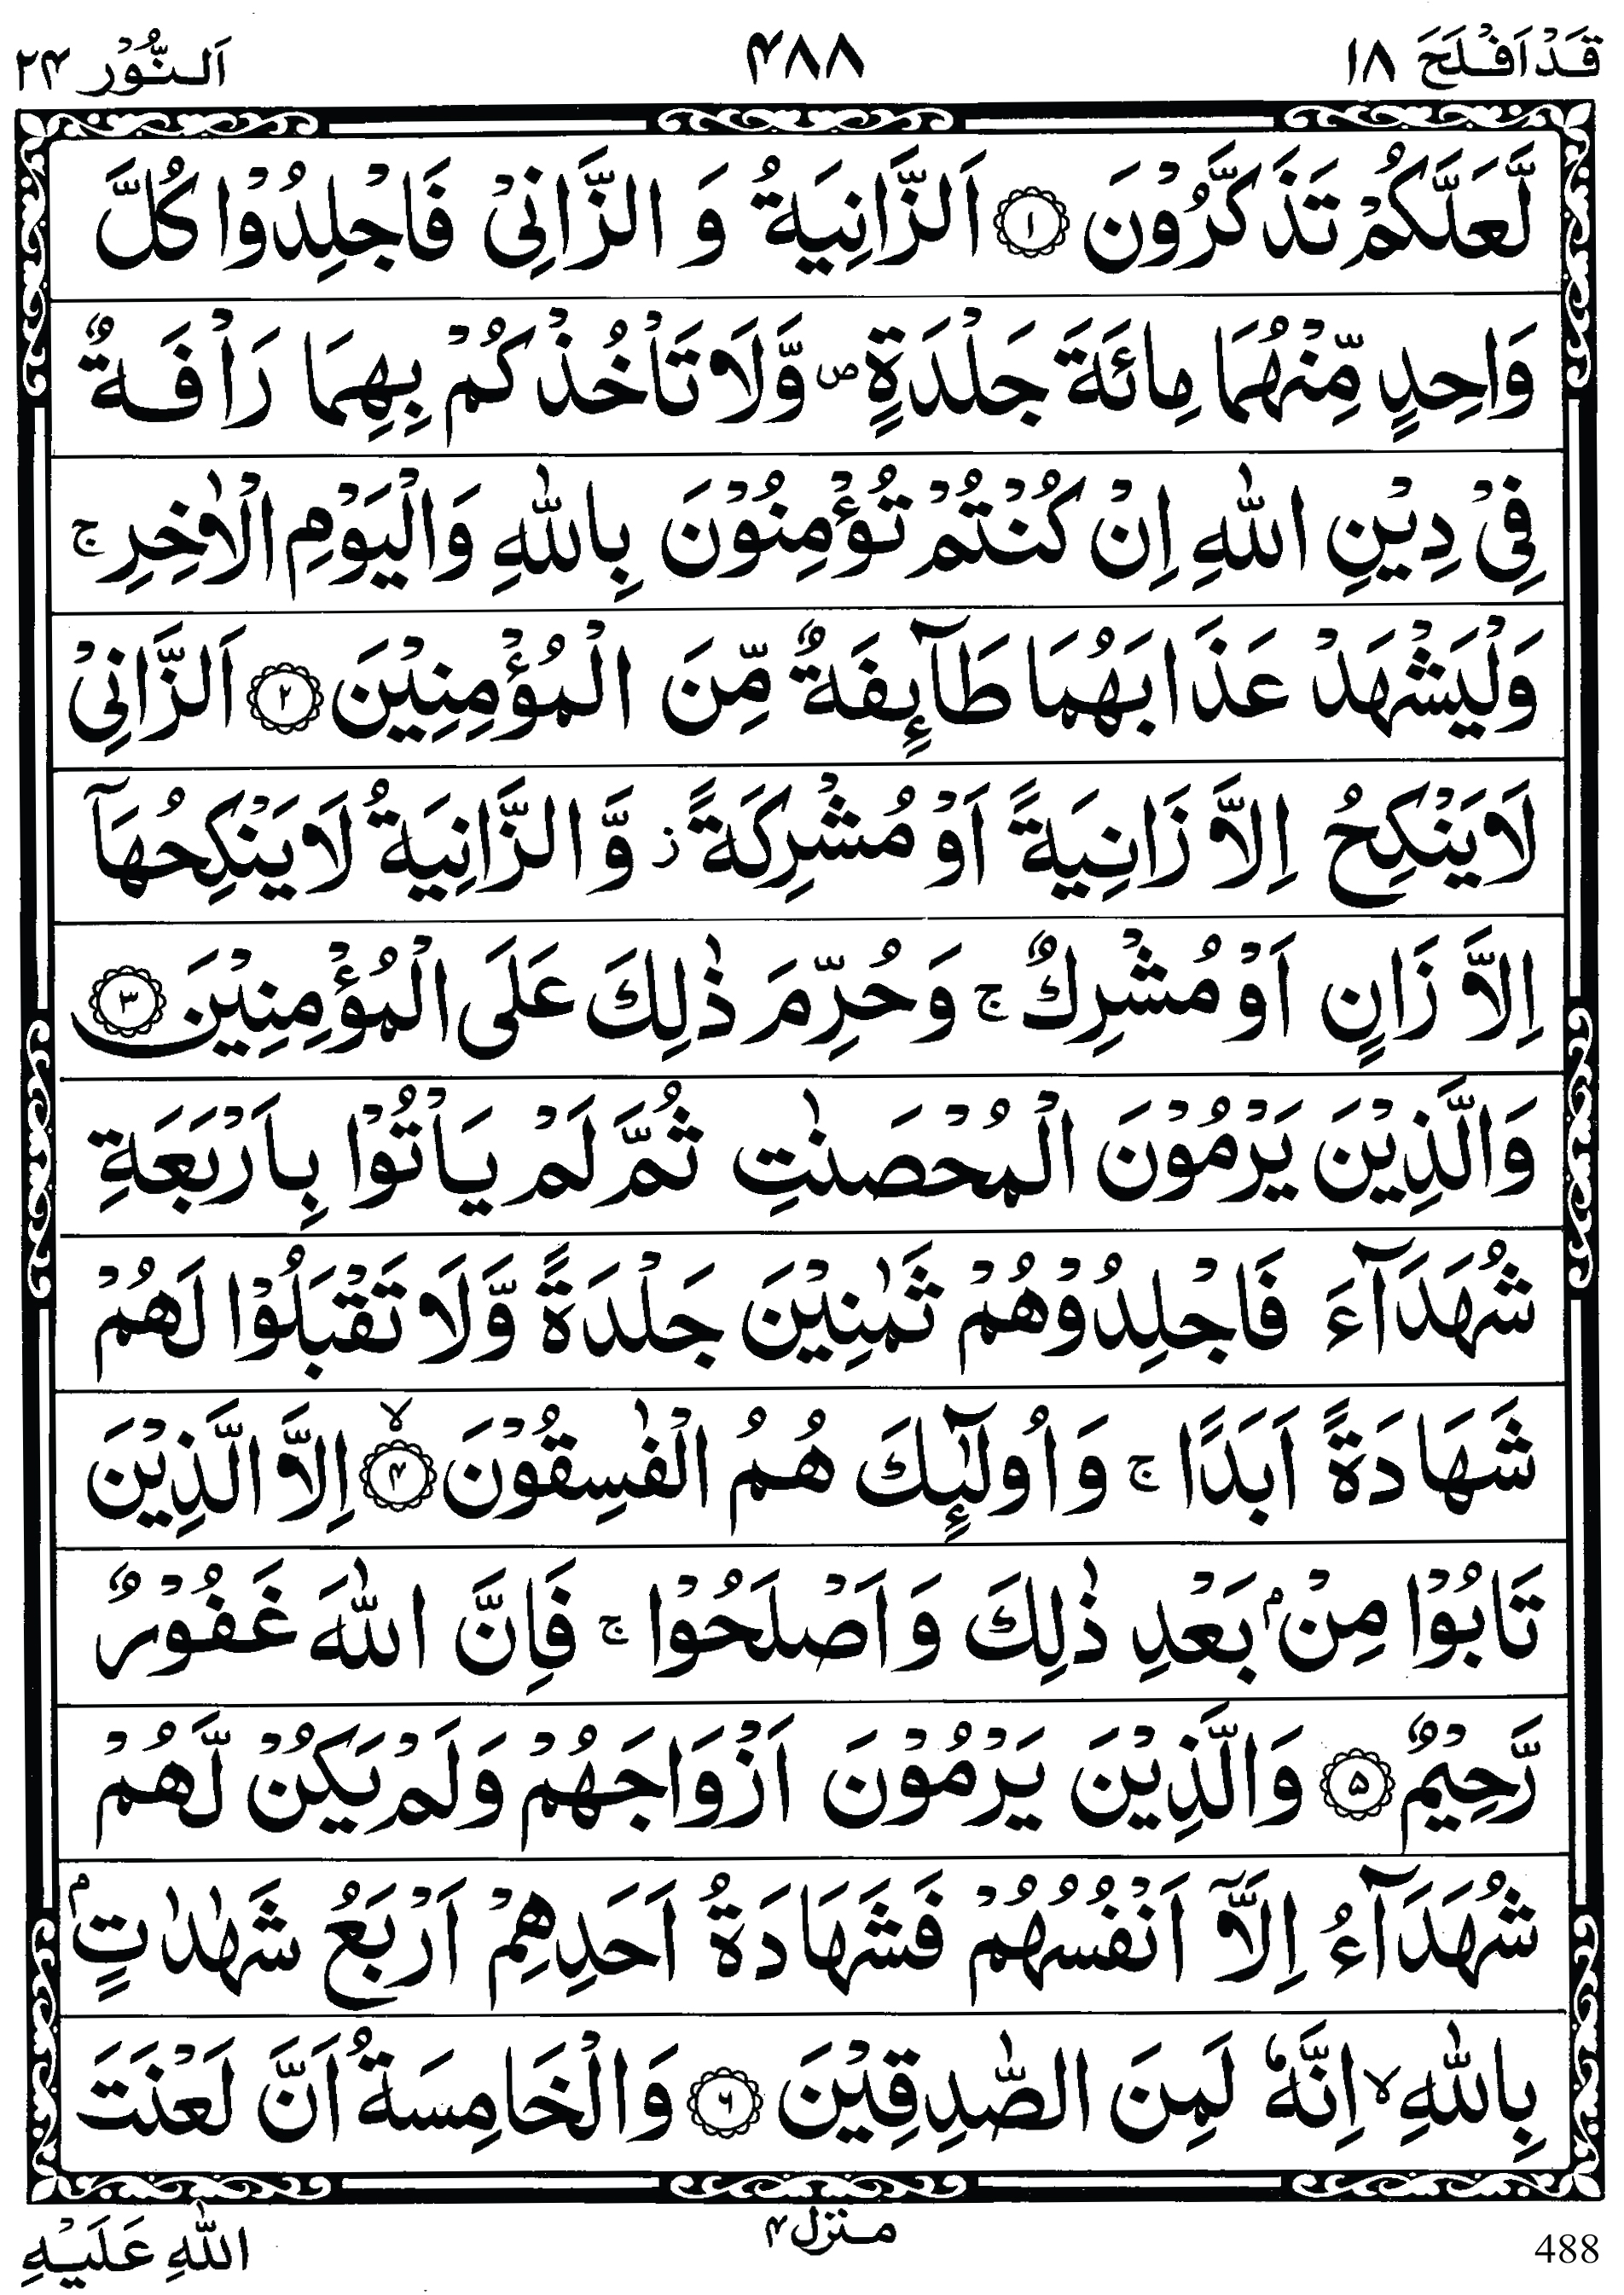 قَدْ اَفْلَحَ ۱۸ ۴۸۸ اَلنُّوْر ۲۴
لَّعَلَّكُمْ تَذَكَّرُوْنَ ۱ اَلزَّانِيَةُ وَ الزَّانِیْ فَاجْلِدُوْا كُلَّ
وَاحِدٍ مِّنْهُمَا مِائَةَ جَلْدَةٍ ص وَّلَا تَاْخُذْكُمْ بِهِمَا رَاْفَةٌ
فِیْ دِيْنِ اللّٰهِ اِنْ كُنْتُمْ تُؤْمِنُوْنَ بِاللّٰهِ وَالْيَوْمِ الْاٰخِرِ ج
وَلْيَشْهَدْ عَذَابَهُمَا طَآئِفَةٌ مِّنَ الْمُؤْمِنِيْنَ ۲ اَلزَّانِیْ
لَا يَنْكِحُ اِلَّا زَانِيَةً اَوْ مُشْرِكَةً ز وَّالزَّانِيَةُ لَا يَنْكِحُهَآ
اِلَّا زَانٍ اَوْ مُشْرِكٌ ج وَحُرِّمَ ذٰلِكَ عَلَى الْمُؤْمِنِيْنَ ۳
وَالَّذِيْنَ يَرْمُوْنَ الْمُحْصَنٰتِ ثُمَّ لَمْ يَاْتُوْا بِاَرْبَعَةِ
شُهَدَآءَ فَاجْلِدُوْهُمْ ثَمٰنِيْنَ جَلْدَةً وَّلَا تَقْبَلُوْا لَهُمْ
شَهَادَةً اَبَدًا ج وَاُولٰٓئِكَ هُمُ الْفٰسِقُوْنَ ۴ لا اِلَّا الَّذِيْنَ
تَابُوْا مِنْۢ بَعْدِ ذٰلِكَ وَاَصْلَحُوْا ج فَاِنَّ اللّٰهَ غَفُوْرٌ
رَّحِيْمٌ ۵ وَالَّذِيْنَ يَرْمُوْنَ اَزْوَاجَهُمْ وَلَمْ يَكُنْ لَّهُمْ
شُهَدَآءُ اِلَّآ اَنْفُسُهُمْ فَشَهَادَةُ اَحَدِهِمْ اَرْبَعُ شَهٰدٰتٍۢ
بِاللّٰهِ لا اِنَّهٗ لَمِنَ الصّٰدِقِيْنَ ۶ وَالْخَامِسَةُ اَنَّ لَعْنَتَ
488 منزل ۴ اللّٰهِ عَلَيْهِ